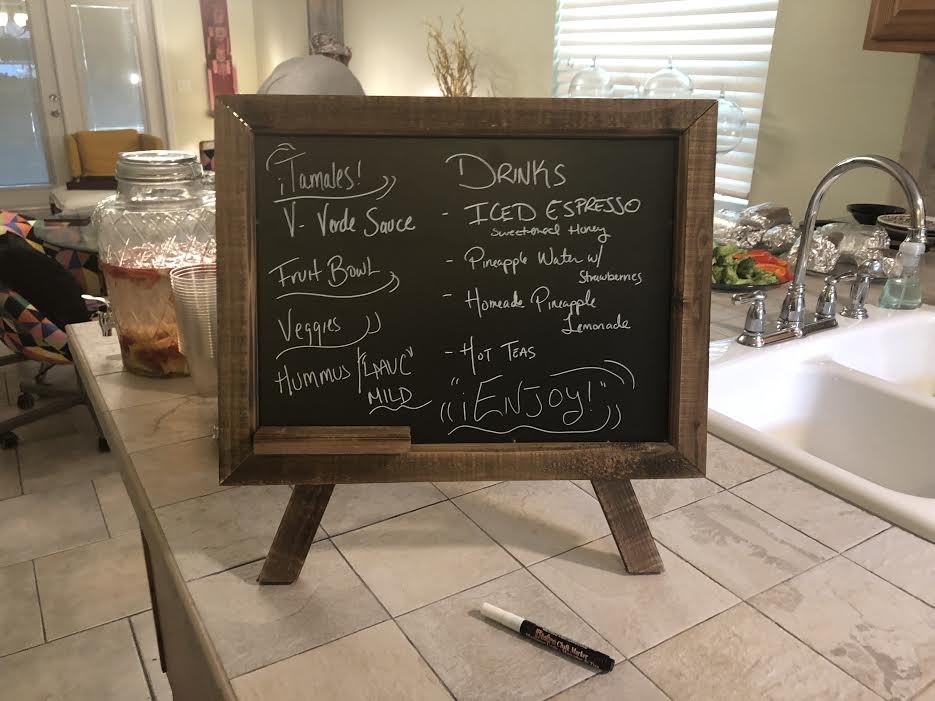 ¡Tamales!
V- Verde Sauce
Fruit Bowl
Veggies
Hummus
MILD
DRINKS
- ICED ESPRESSO
Sweetened Honey
- Pineapple Water w/
Strawberries
- Homeade Pineapple
Lemonade
- HOT TEAS
"¡ENJOY!"
Chalk Marker